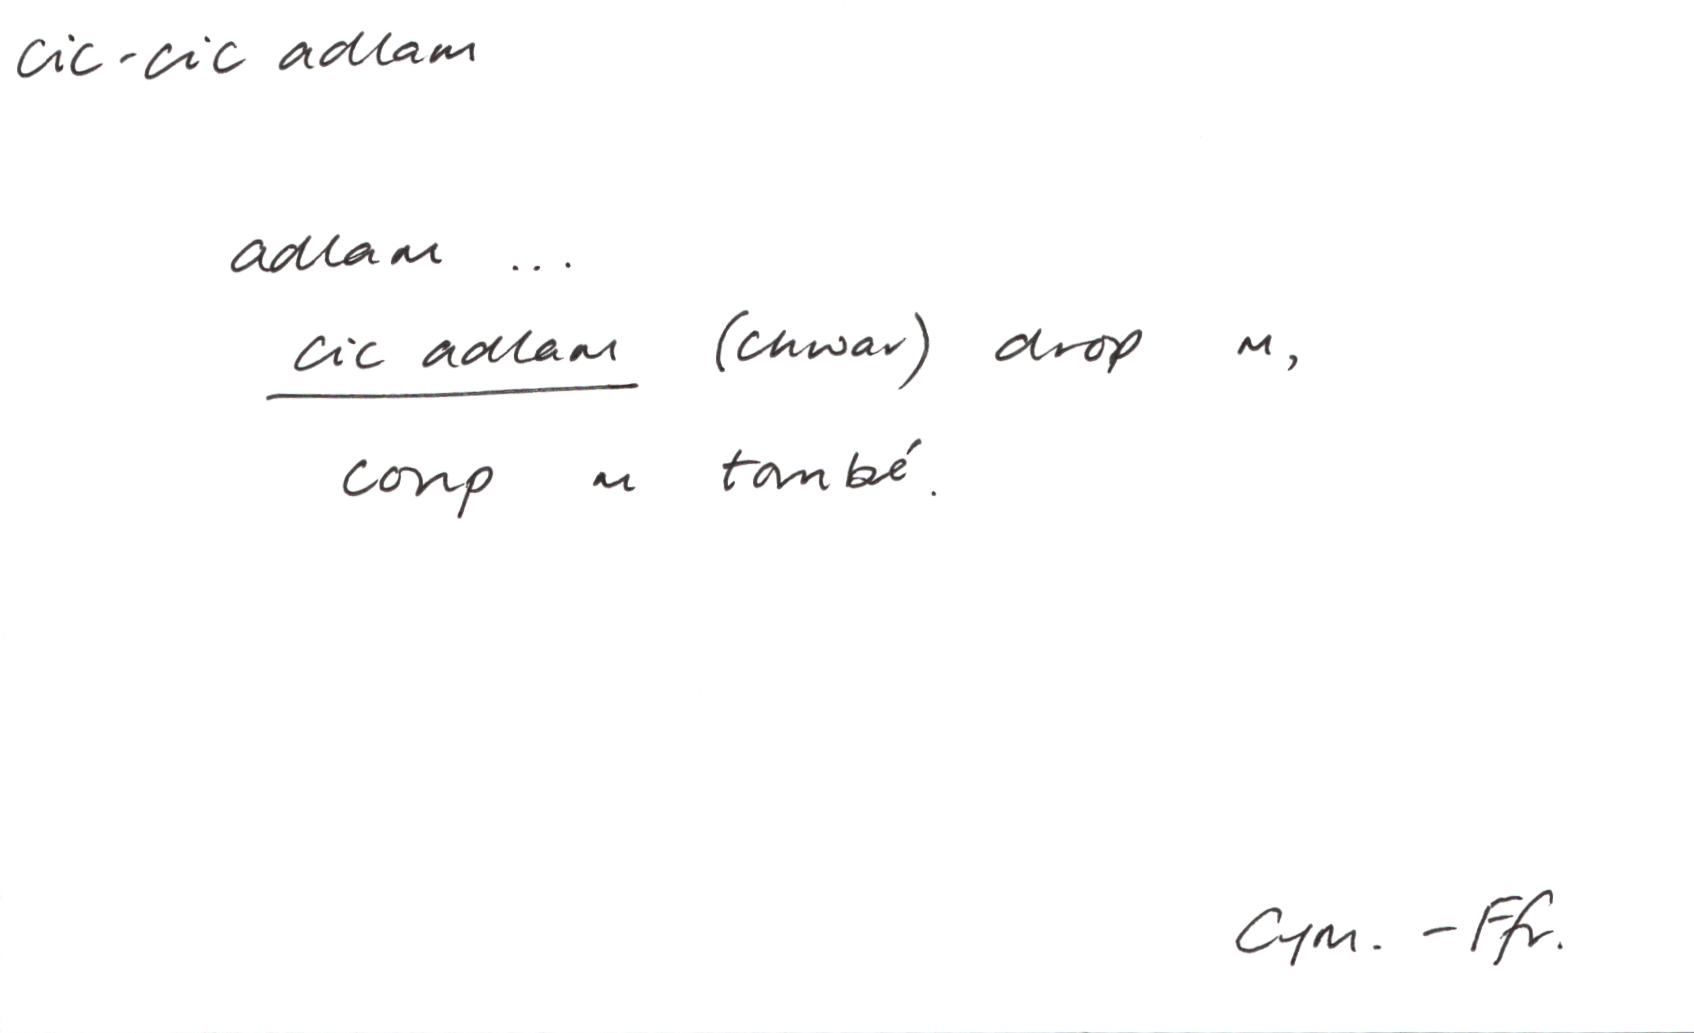 cic - cic adlam
adlam ...
cic adlam (chwar) drop m,
coup m tombé.
Cym. - Ffr.